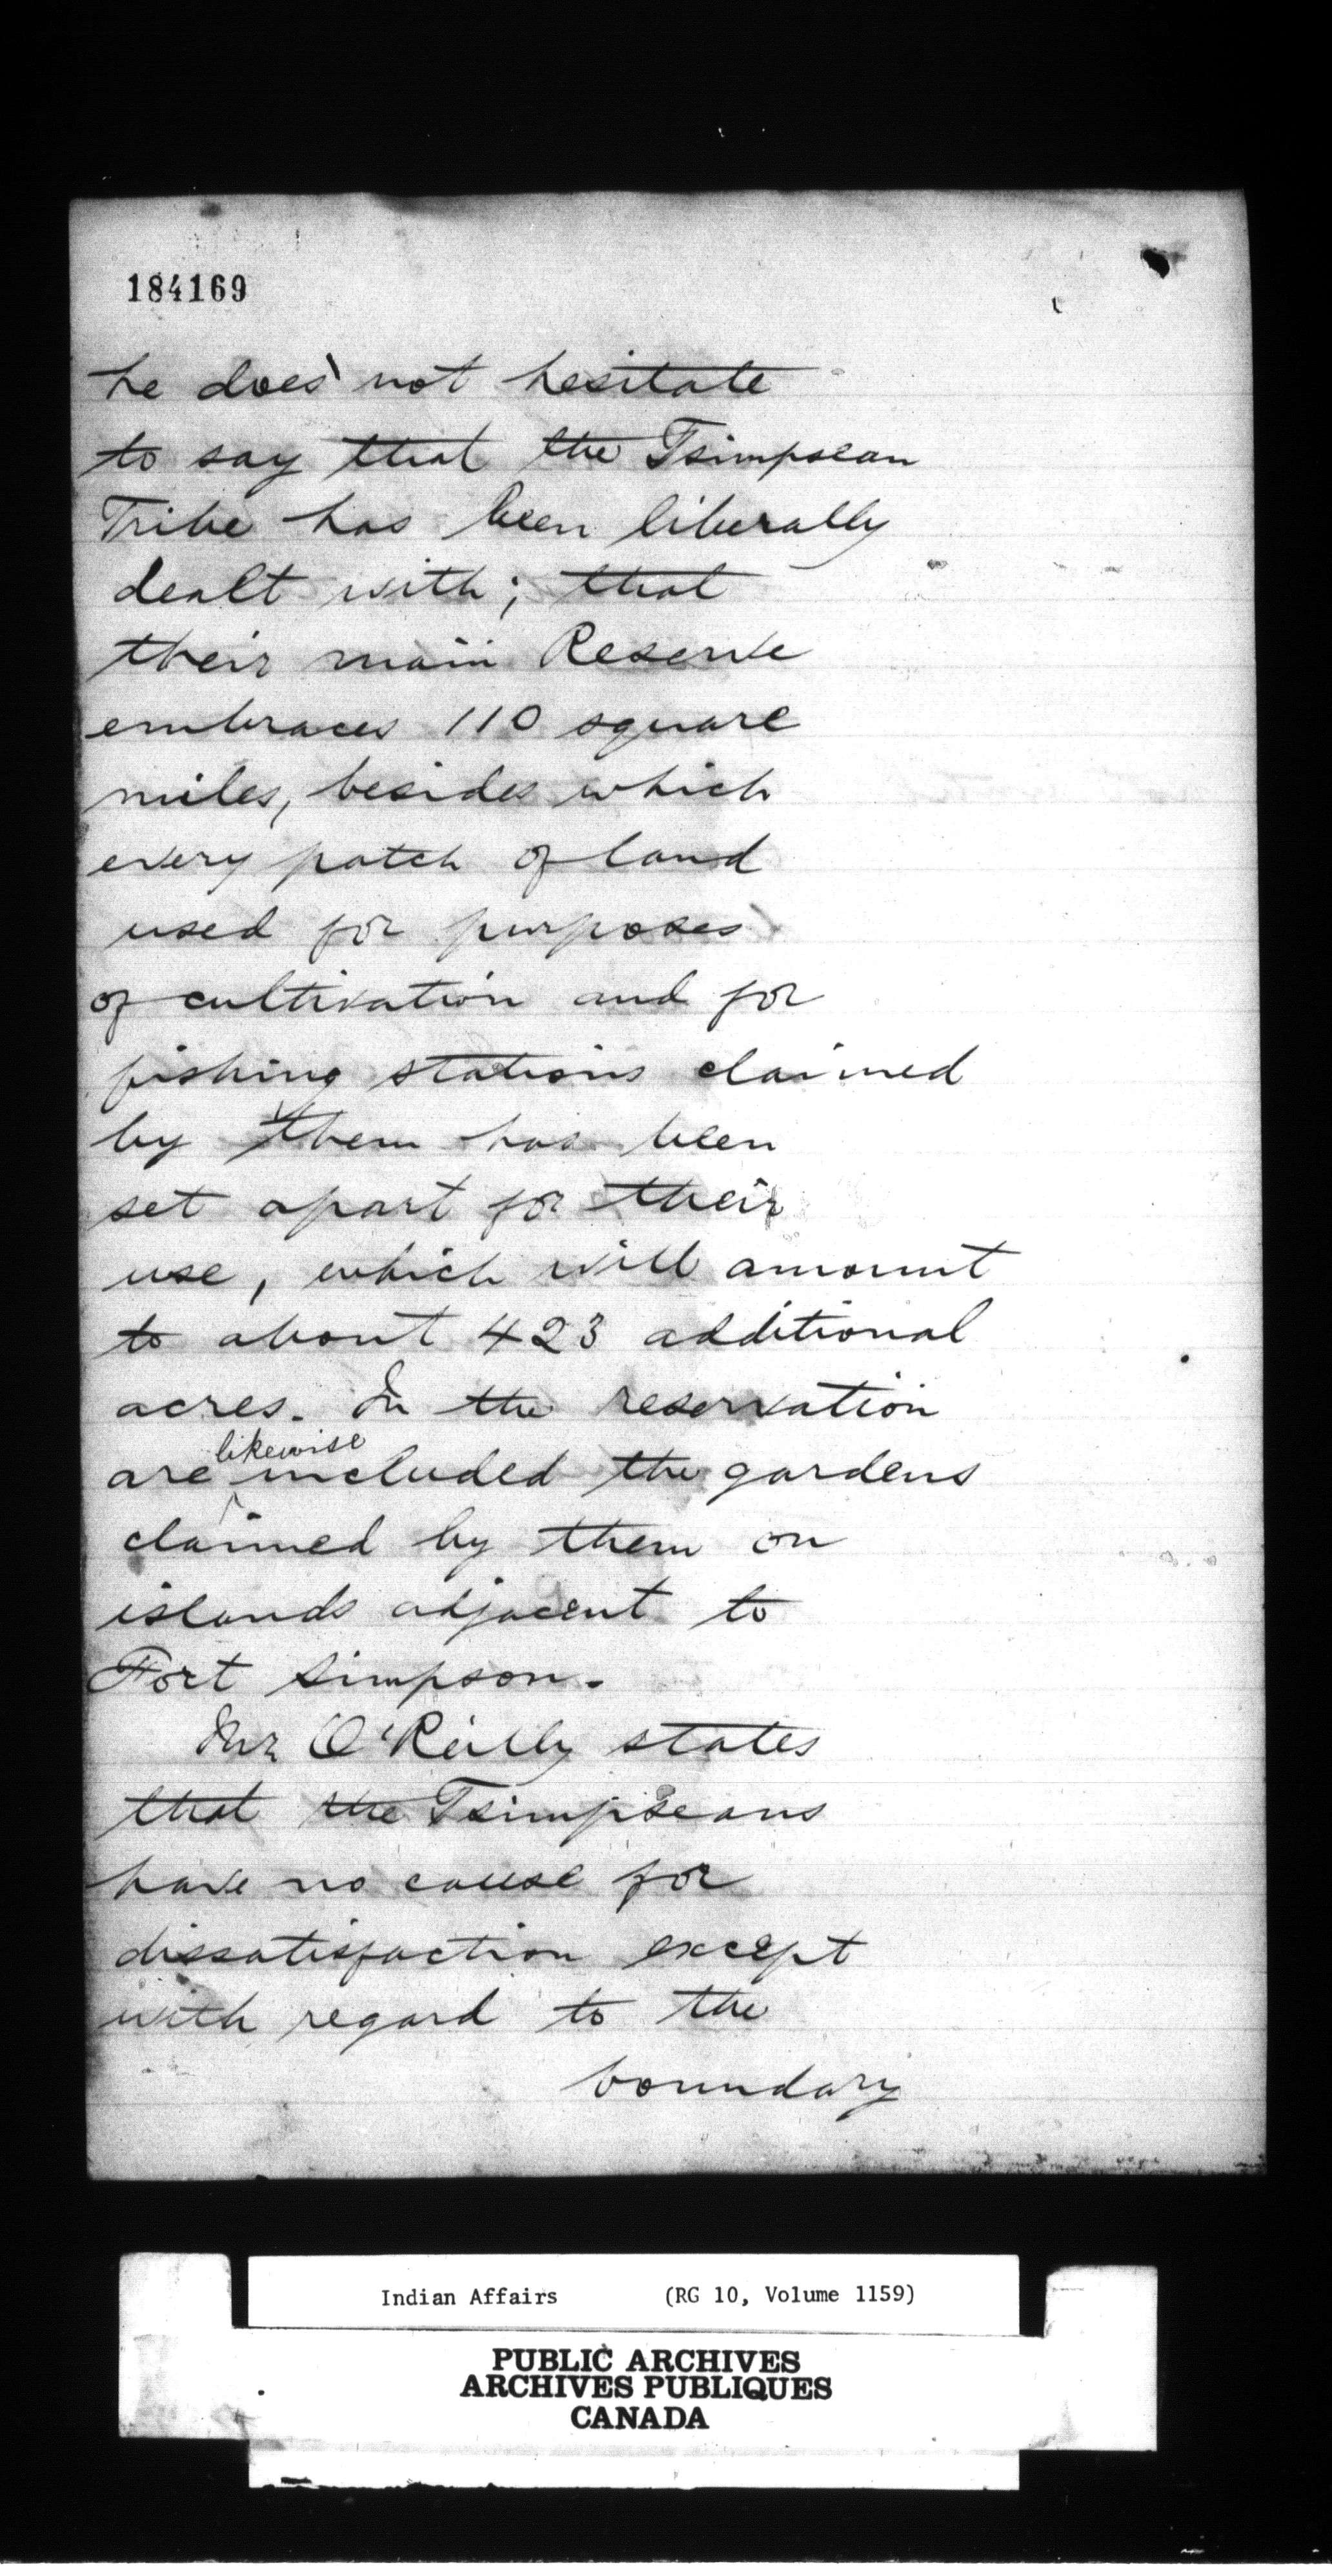 184169
he does not hesitate
to say that the Tsimpsean
Tribe has been liberally
dealt with; that
their main Reserve
embraces 110 square
miles, besides which
every patch of land
used for purposes
of cultivation and for
fishing stations claimed
by them has been
set apart for their
use, which will amount
to about 423 additional
acres. In the reservation
likewise
are included the gardens
claimed by them on
islands adjacent to
Fort Simpson.
Mr O'Reilly states
that the Tsimpseans
have no cause for
dissatisfaction except
with regard to the
boundary
Indian Affairs (RG 10, Volume 1159)
PUBLIC ARCHIVES
ARCHIVES PUBLIQUES
CANADA